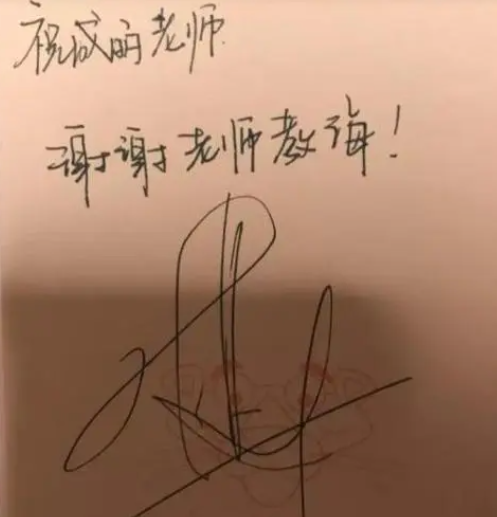 祝成明老师
谢谢老师教诲！